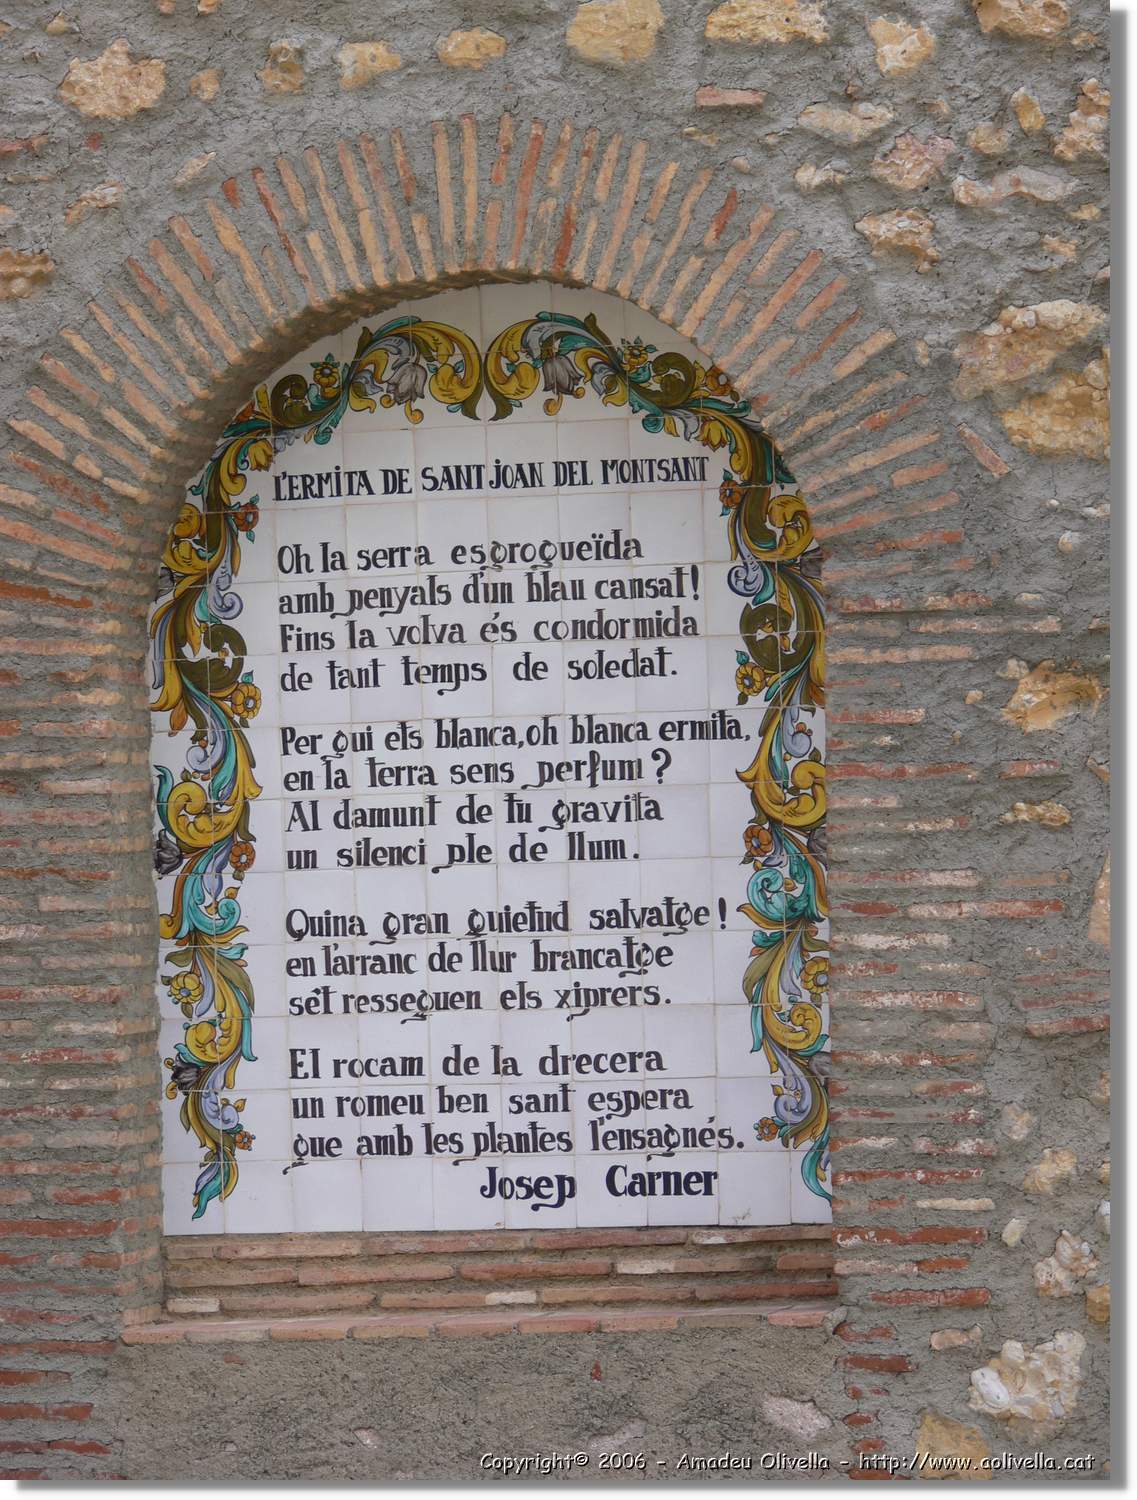 L'ERMITA DE SANT JOAN DEL MONTSANT
Oh la serra esgrogueïda
amb penyals d'un blau cansat!
Fins la volva és condormida
de tant temps de soledat.
Per qui ets blanca, oh blanca ermita,
en la terra sens perfum?
Al damunt de tu gravita
un silenci ple de llum.
Quina gran quietud salvatge!
en l'arranc de llur brancatge
set resseguen els xiprers.
El rocam de la drecera
un romeu ben sant espera
que amb les plantes l'ensagnés.
Josep Carner
Copyright© 2006 - Amadeu Olivella - http://www.aolivella.cat